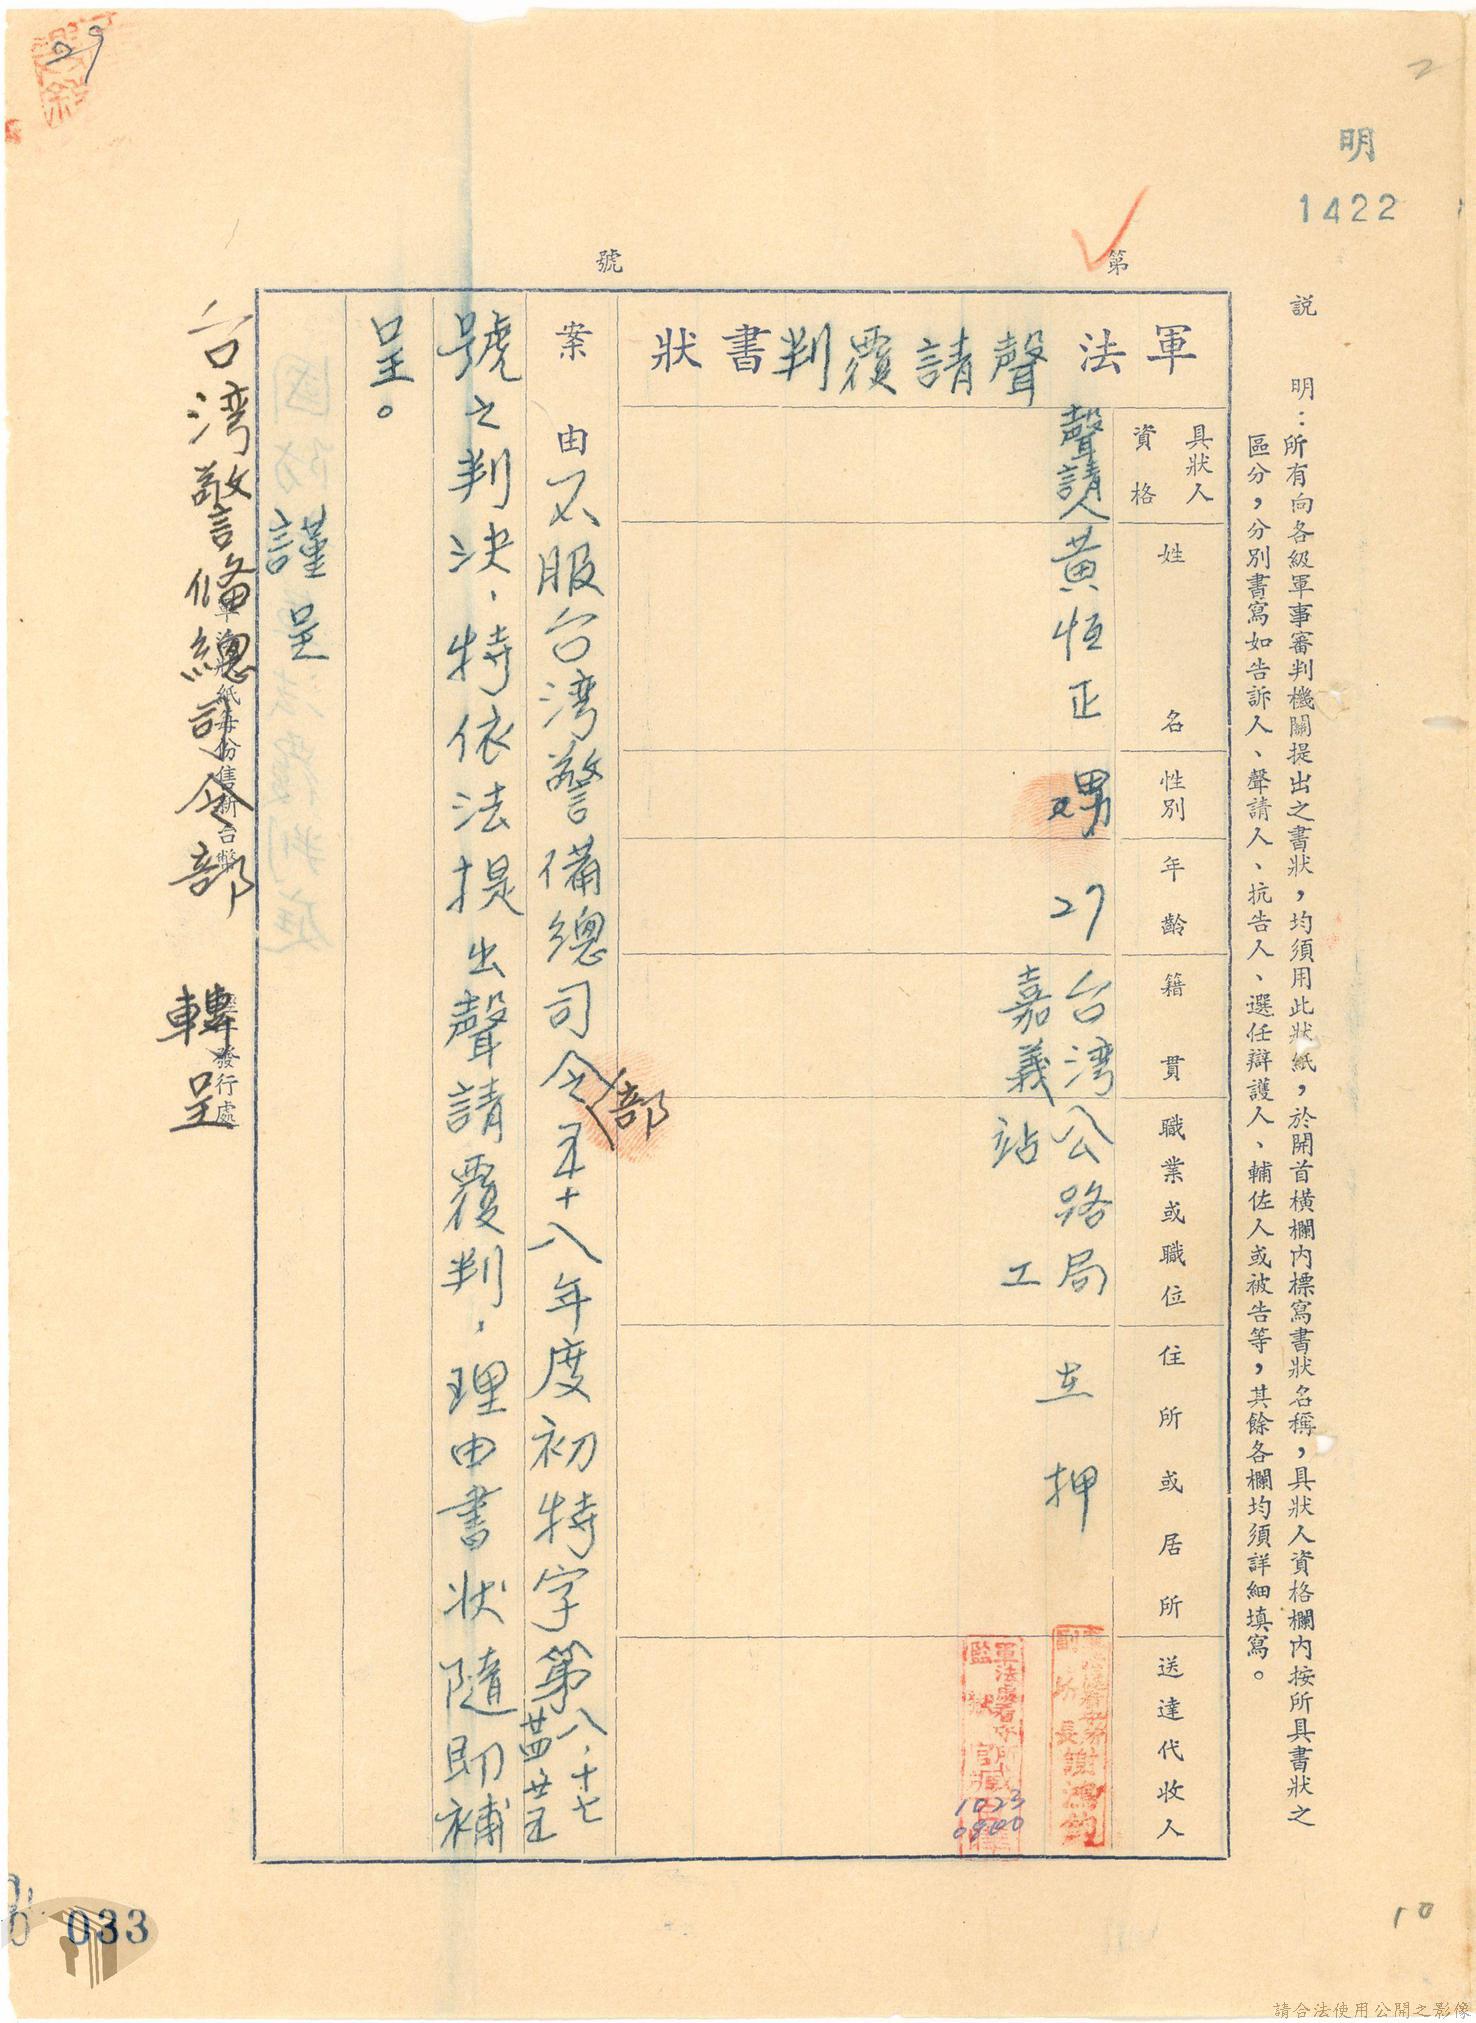 2
明
1422
29
第 號
說明：所有向各級軍事審判機關提出之書狀，均須用此狀紙，於開首橫欄內標寫書狀名稱，具狀人資格欄內按所具書狀之
區分，分別書寫如告訴人、聲請人、抗告人、選任辯護人、輔佐人或被告等，其餘各欄均須詳細填寫。
軍法聲請覆判書狀
具狀人
資格
姓名
性別
年齡
籍貫
職業或職位
住所或居所
送達代收人
聲請人
黃恒正
男
27
台灣
嘉義
公路局
站工
在押
副所長謝鴻鈞
軍法處看守所
監獄官
1023
0900
案由
不服台湾警備總司令部五十八年度初特字第八、十七
廿四 廿五
號之判決，特依法提出聲請覆判，理由書狀隨即補
呈。
謹呈
台湾警備總司令部 轉呈
紙每份售新台幣
發行處
033
10
請合法使用公開之影像